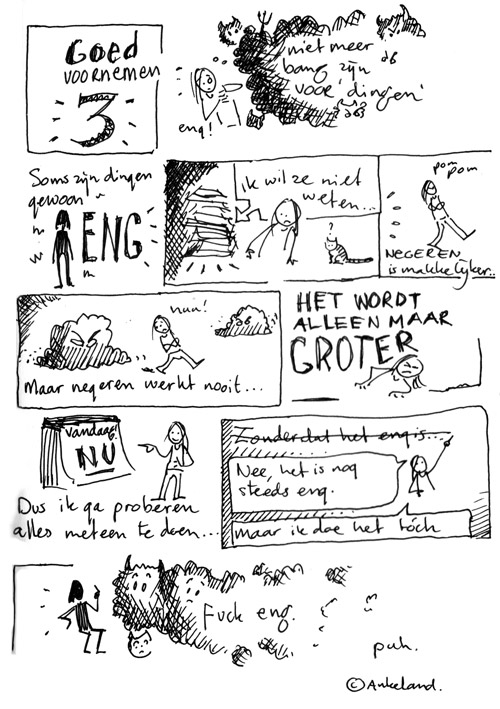 Goed
VOORNEMEN
3
niet meer
bang zijn
voor 'dingen'
eng!
Soms zijn dingen
gewoon
ENG
ik wil ze niet
weten...
?
pom
pom
NEGEREN
is makkelijker..
Maar negeren werkt nooit...
HET WORDT
ALLEEN MAAR
GROTER
Vandaag!
NU
Dus ik ga proberen
alles meteen te doen...
Zonder dat het eng is...
Nee, het is nog
steeds eng.
maar ik doe het tóch
Fuck eng.
puh.
©Ankeland.